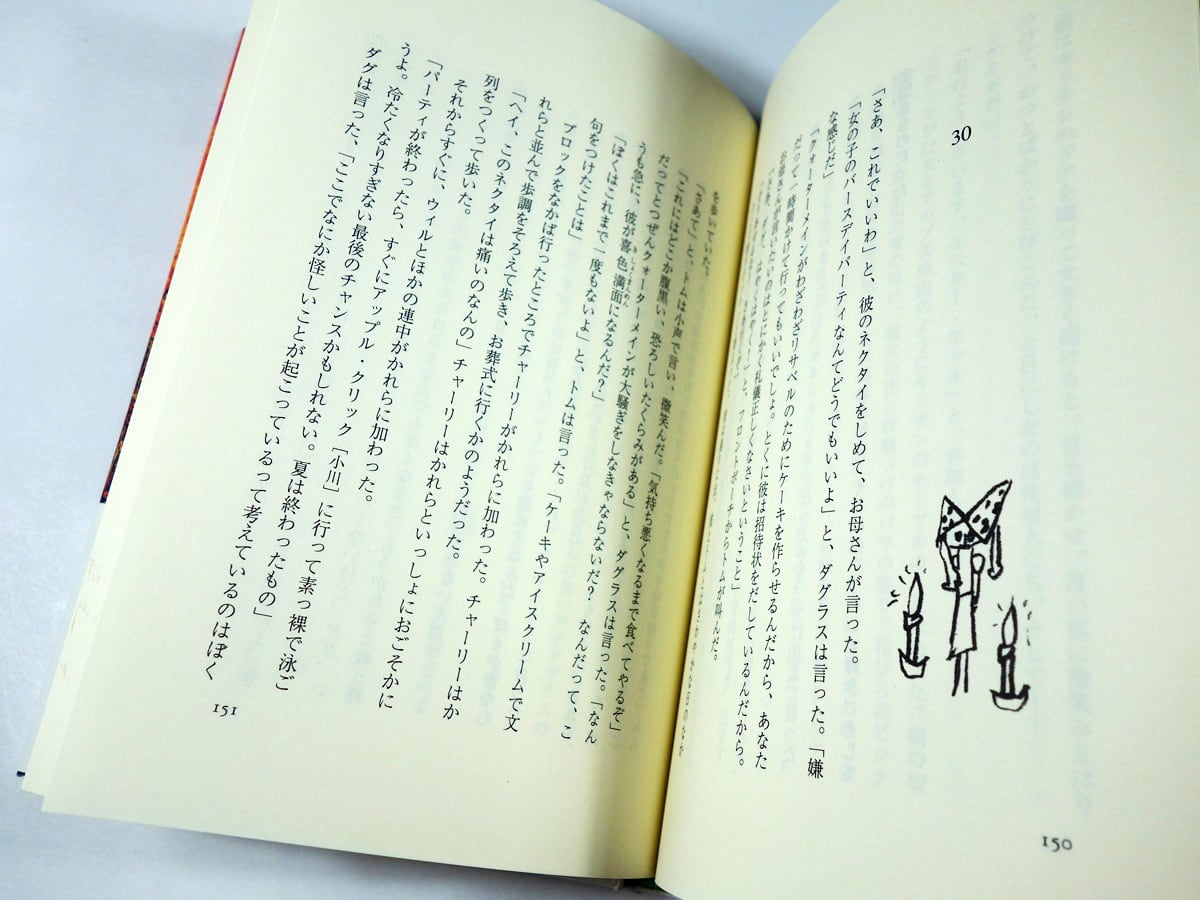 30
「さあ、これでいいわ」と、彼のネクタイをしめて、お母さんが言った。
「女の子のバースデイパーティなんてどうでもいいよ」と、ダグラスは言った。「嫌
な感じだ」
「クォーターメインがわざわざリサベルのためにケーキを作らせるんだから、あなた
だって一時間かけて行ってもいいでしょ。とくに彼は招待状をだしているんだから。
お母さんが言いたいのはとにかく礼儀正しくなさいということ」
と、フロントポーチからトムが叫んだ。
150
を歩いていた。
「さあて」と、トムは小声で言い、微笑んだ。「気持ち悪くなるまで食べてやるぞ」
「これにはどこか腹黒い、恐ろしいたくらみがある」と、ダグラスは言った。「なん
だってとつぜんクォーターメインが大騒ぎをしなきゃならないんだ? なんだって、こ
うも急に、彼が喜色満面になるんだ?」
きしょくまんめん
「ぼくはこれまで一度もないよ」と、トムは言った。「ケーキやアイスクリームで文
句をつけたことは」
ブロックをなかば行ったところでチャーリーがかれらに加わった。チャーリーはか
れらと並んで歩調をそろえて歩き、お葬式に行くかのようだった。
「ヘイ、このネクタイは痛いのなんの」チャーリーはかれらといっしょにおごそかに
列をつくって歩いた。
それからすぐに、ウィルとほかの連中がかれらに加わった。
「パーティが終わったら、すぐにアップル・クリック［小川］に行って素っ裸で泳ご
うよ。冷たくなりすぎない最後のチャンスかもしれない。夏は終わったもの」
ダグは言った、「ここでなにか怪しいことが起こっているって考えているのはぼく
151